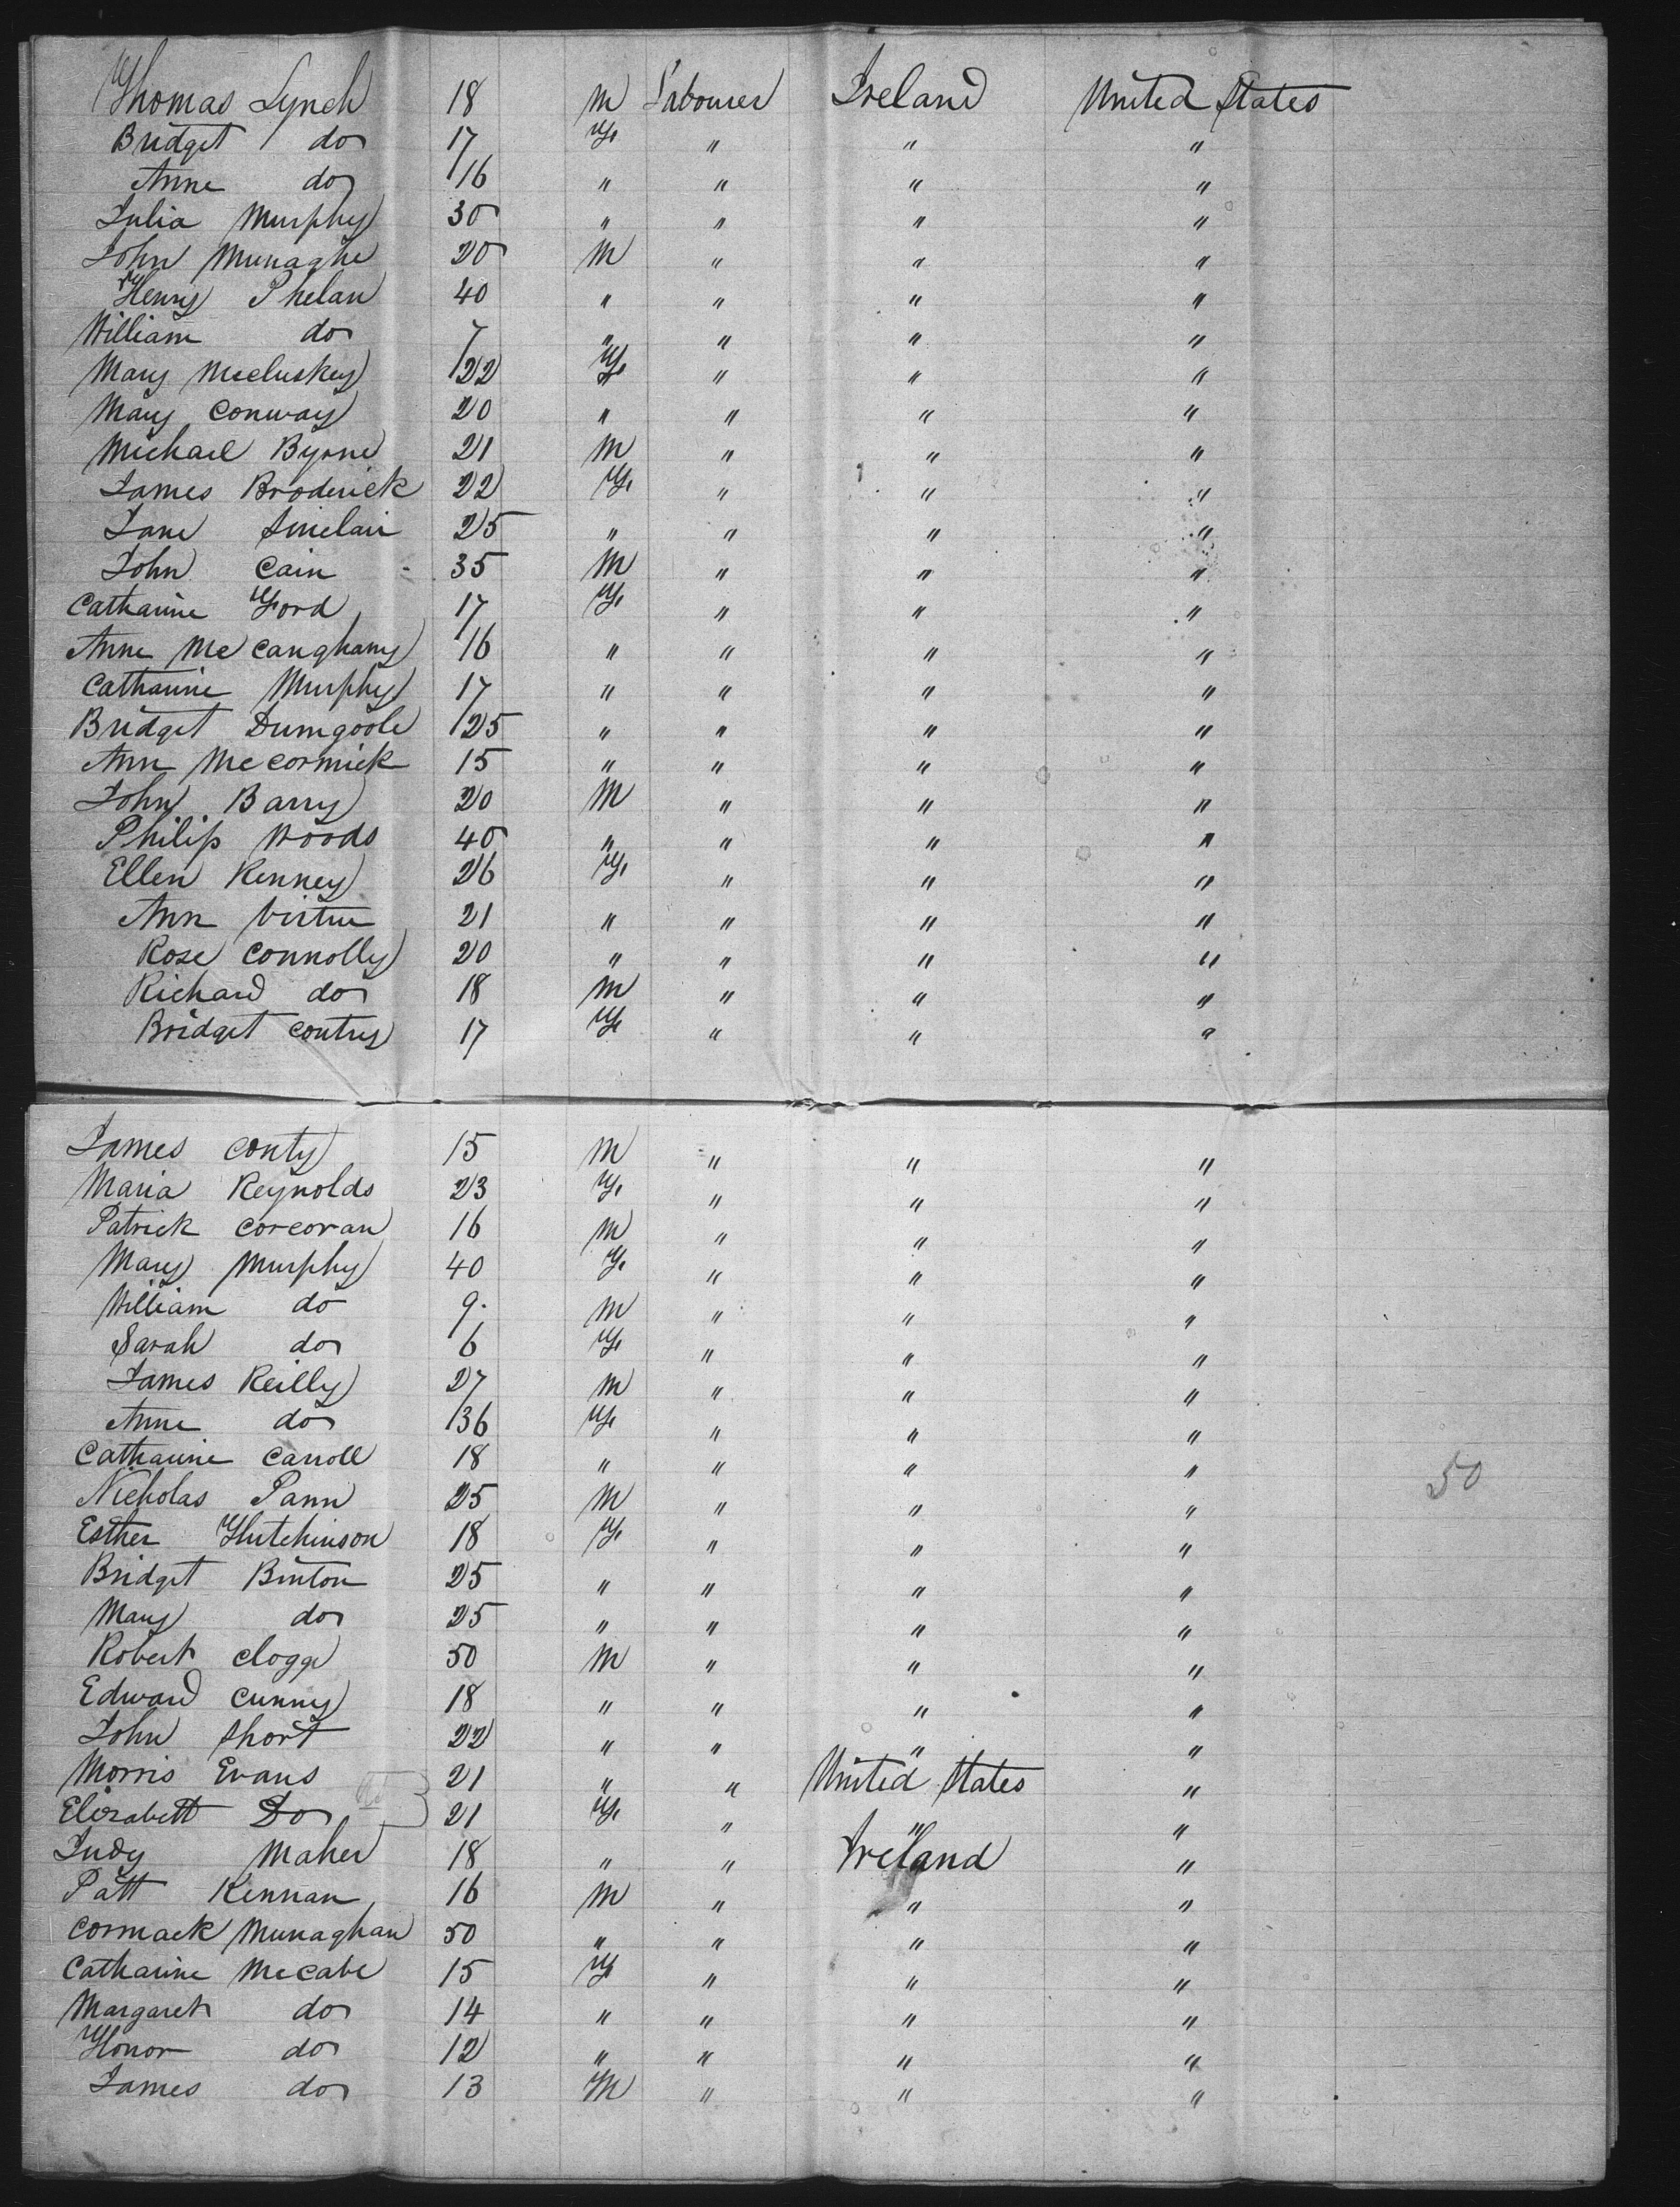 Thomas Lynch 18 M Labourer Ireland United States
Bridget do 17 F " " "
Anne do 16 " " " "
Julia Murphy 30 " " " "
John Munaghe 20 M " " "
Henry Phelan 40 " " " "
William do 7 " " " "
Mary McCluskey 22 F " " "
Mary Conway 20 " " " "
Michael Byrne 21 M " " "
James Broderick 22 F " " "
Jane Sinclair 25 " " " "
John Cain 35 M " " "
Catharine Ford 17 F " " "
Anne McCanghany 16 " " " "
Catharine Murphy 17 " " " "
Bridget Dumgoole 25 " " " "
Ann McCormick 15 " " " "
John Barry 20 M " " "
Philip Woods 40 " " " "
Ellen Kenney 26 F " " "
Ann Virtue 21 " " " "
Rose Connolly 20 " " " "
Richard do 18 M " " "
Bridget Contry 17 F " " "
James Conty 15 M " " "
Maria Reynolds 23 F " " "
Patrick Corcoran 16 M " " "
Mary Murphy 40 F " " "
William do 9. M " " "
Sarah do 6 F " " "
James Reilly 27 M " " "
Anne do 36 F " " "
Catharine Carroll 18 " " " "
Nicholas Pann 25 M " " " 50
Esther Hutchinson 18 F " " "
Bridget Binton 25 " " " "
Mary do 25 " " " "
Robert Clogge 50 M " " "
Edward Cunny 18 " " " "
John Short 22 " " " "
Morris Evans 21 " " United States "
Elizabett Do 21 F " " "
Judy Maher 18 " " Ireland "
Patt Kennan 16 M " " "
Cormack Munaghan 50 " " " "
Catharine McCabe 15 F " " "
Margaret do 14 " " " "
Honor do 12 " " " "
James do 13 M " " "